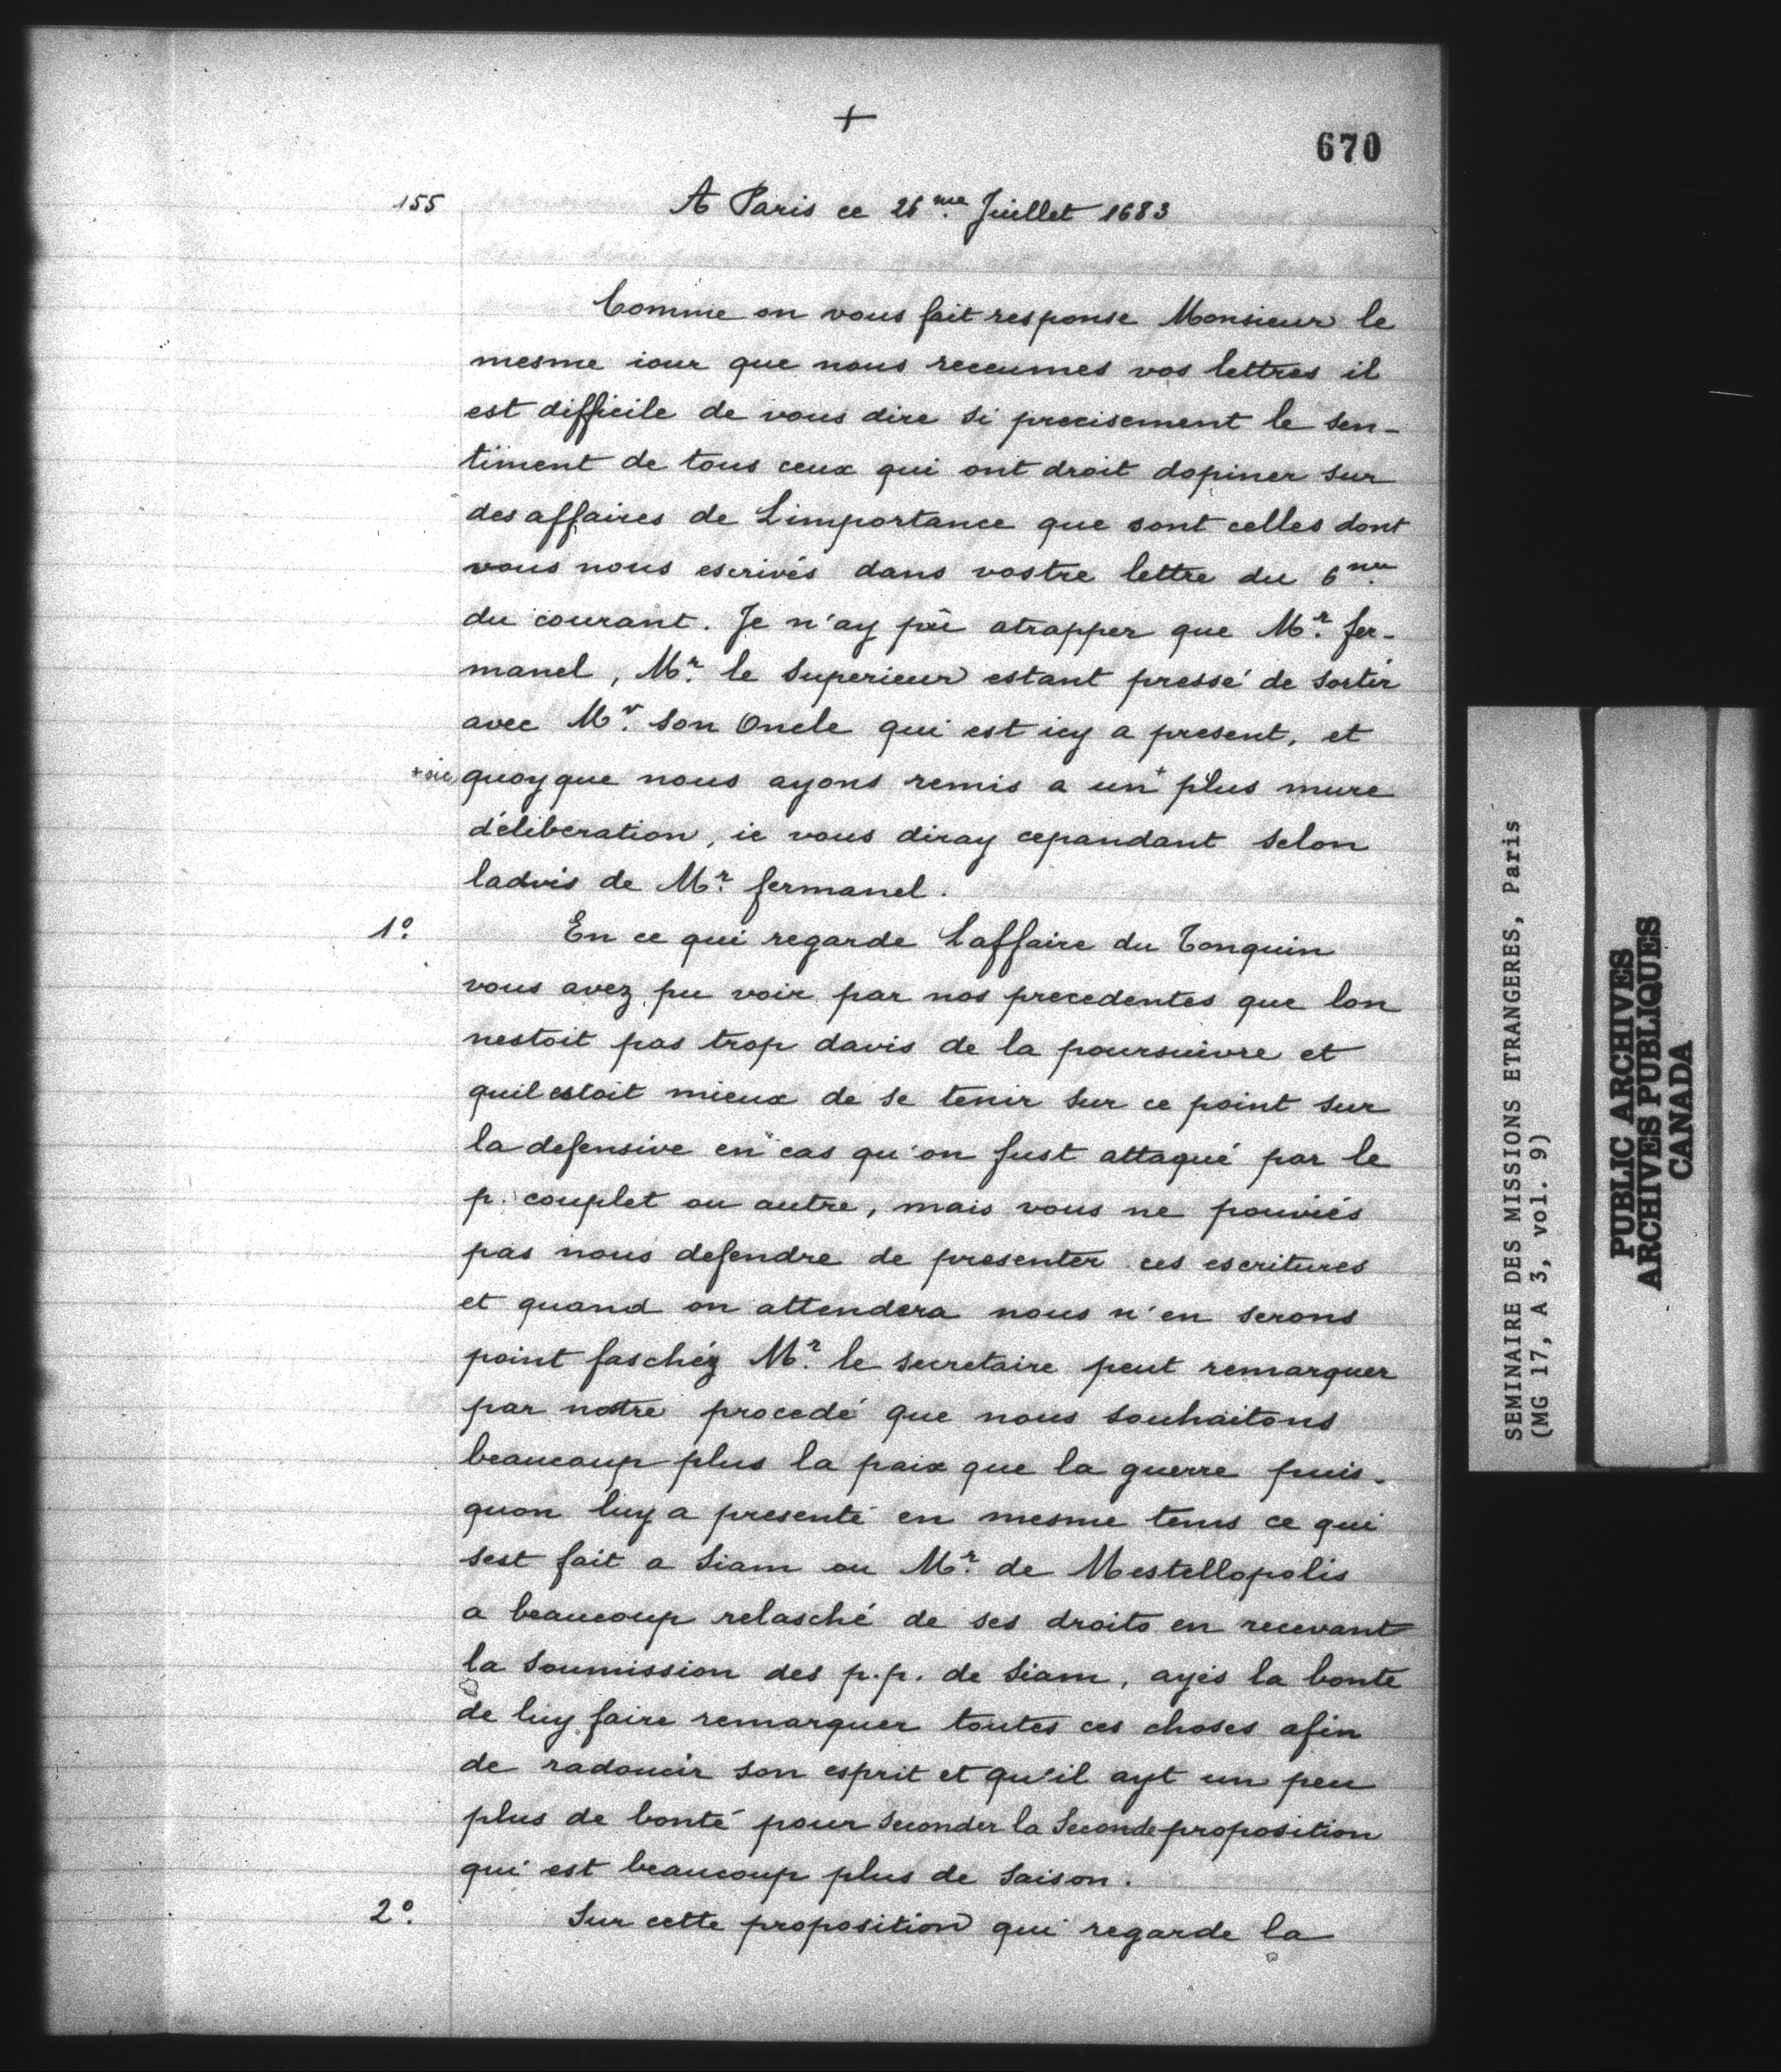 +
670
155
A Paris ce 26me Juillet 1683
Comme on vous fait response Monsieur le
mesme iour que nous receumes vos lettres il
est difficile de vous dire si precisement le sen-
timent de tous ceux qui ont droit dopiner sur
des affaires de Limportance que sont celles dont
vous nous escrivés dans vostre lettre du 6me
du courant. Je n'ay pû atrapper que Mr. fer-
manel, Mr. le Superieur estant pressé de sortir
avec Mr. son Oncle qui est icy a present, et
+sic quoyque nous ayons remis a un+ plus mure
déliberation, ie vous diray cepandant selon
ladvis de Mr. fermanel.
1o. En ce qui regarde Laffaire du Tonquin
vous avez pu voir par nos precedentes que lon
nestoit pas trop davis de la poursuivre et
quil estoit mieux de se tenir sur ce point sur
la defensive en cas qu'on fust attaqué par le
p. couplet ou autre, mais vous ne pouviés
pas nous defendre de presenter ces escritures
et quand on attendera nous n'en serons
point faschéz Mr. le secretaire peut remarquer
par nottre procedé que nous souhaitons
beaucoup plus la paix que la guerre puis-
quon luy a presenté en mesme tems ce qui
sest fait a Siam ou Mr. de Mestellopolis
a beaucoup relasché de ses droits en recevant
la Soumission des p.p. de Siam, ayés la bonte
de luy faire remarquer toutes ces choses afin
de radoucir son esprit et qu'il ayt un peu
plus de bonté pour seconder la Seconde proposition
qui est beaucoup plus de saison.
2o. Sur cette proposition qui regarde la
SEMINAIRE DES MISSIONS ETRANGERES, Paris
(MG 17, A 3, vol. 9)
PUBLIC ARCHIVES
ARCHIVES PUBLIQUES
CANADA